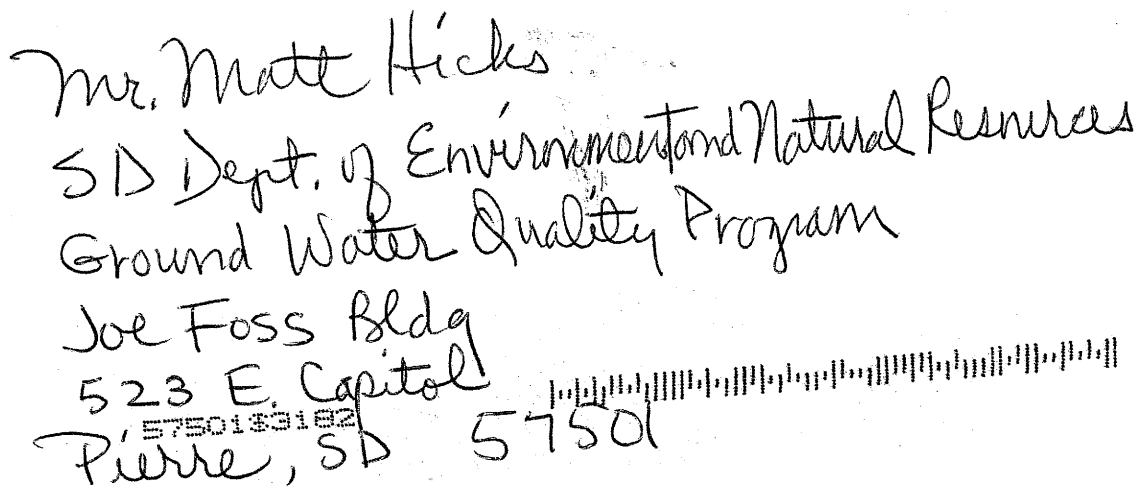 Mr. Matt Hicks
SD Dept. of Environment and Natural Resources
Ground Water Quality Program
Joe Foss Bldg
523 E. Capitol
57501$3182
Pierre, SD 57501